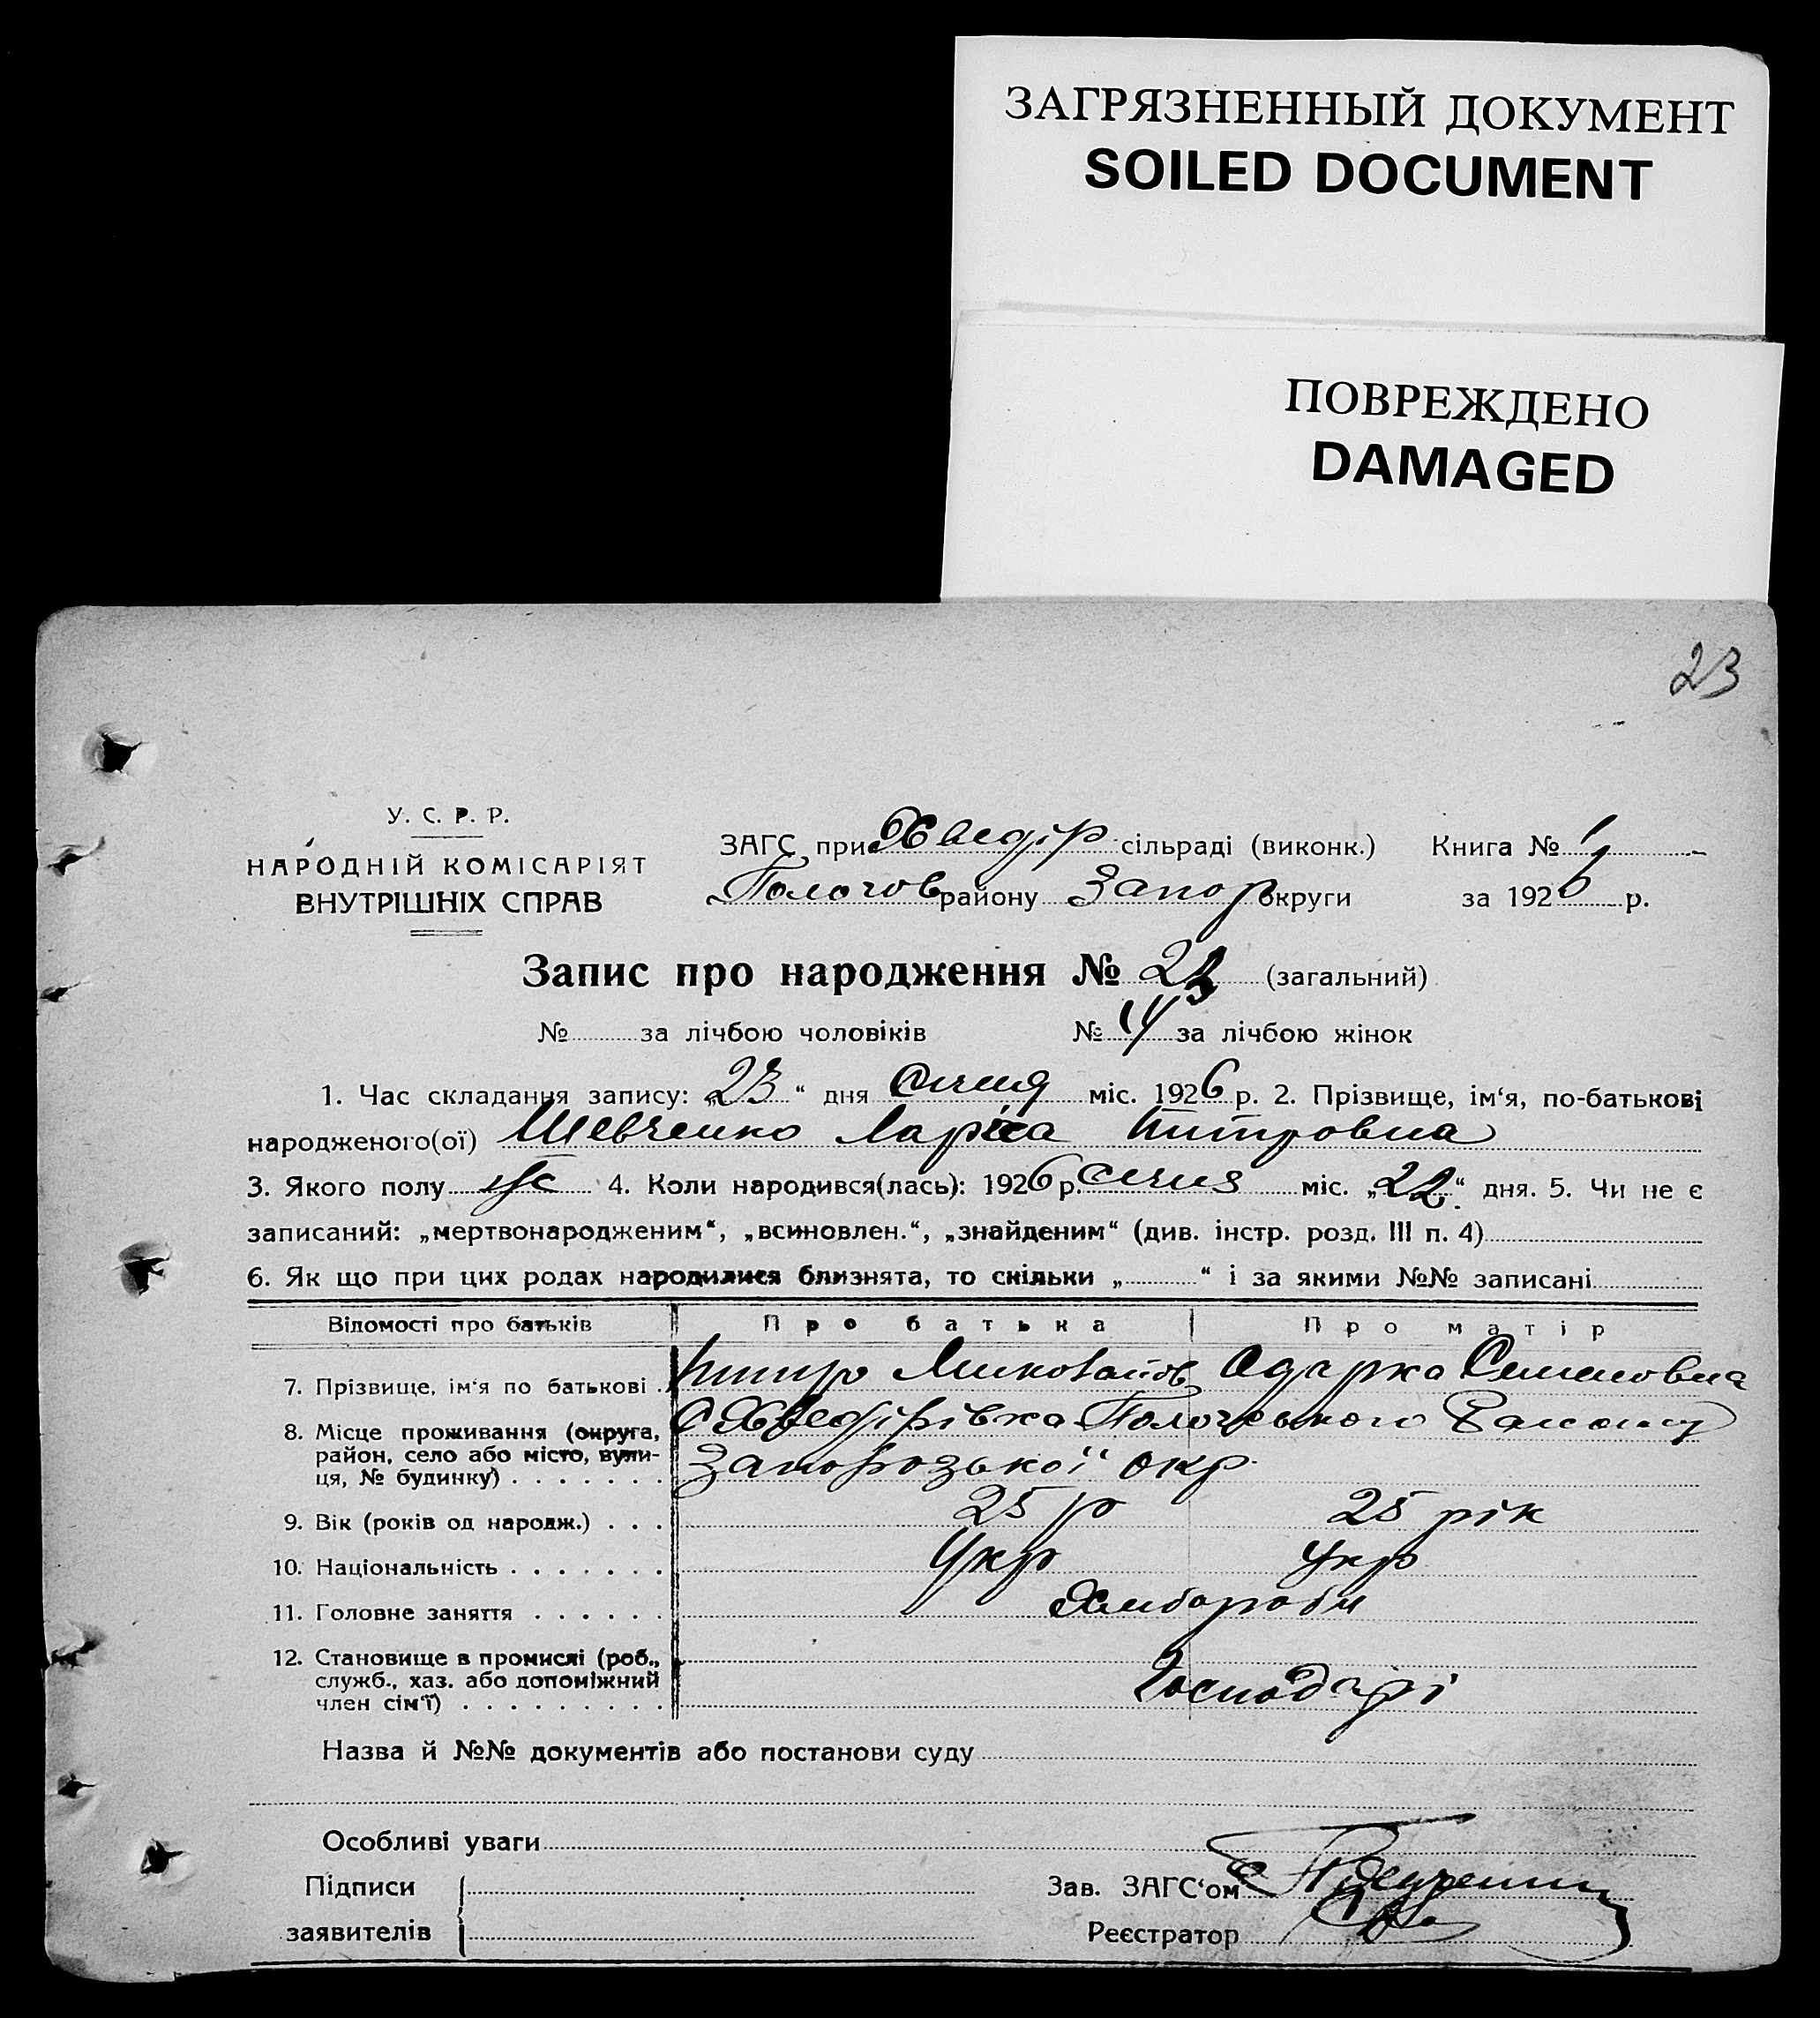 ЗАГРЯЗНЕННЫЙ ДОКУМЕНТ
SOILED DOCUMENT
ПОВРЕЖДЕНО
DAMAGED
23
У. С. Р. Р.
НАРОДНІЙ КОМІСАРІЯТ
ВНУТРІШНІХ СПРАВ
ЗАГС при Хведір сільраді (виконк.) Книга № 1
Пологов району Запор округи за 1926 р.
Запис про народження № 23 (загальний)
№ за лічбою чоловіків № 14 за лічбою жінок
1. Час складання запису: „23“ дня січня міс. 1926 р. 2. Прізвище, ім‘я, по-батькові
народженого(ої) Шевченко Ларіса Питровна
3. Якого полу жс 4. Коли народився(лась): 1926 р. січня міс. „22“ дня. 5. Чи не є
записаний: „мертвонародженим“, „всиновлен.“, „знайденим“ (див. інстр. розд. III п. 4)
6. Як що при цих родах народилися близнята, то скільки „ “ і за якими №№ записані
Відомості про батьків Про батька Про матір
7. Прізвище, ім‘я по батькові . Питро Миколайов Одарка Семеновна
8. Місце проживання (округа, С Хведірівка Пологовського Району
район, село або місто, вули-
ця, № будинку) . . . . . . . Запорозької окр.
9. Вік (років од народж.) . . . 25 р 25 рік
10. Національність . . . . . . . Укр Укр
11. Головне заняття . . . . . . Хлибороби
12. Становище в промислі (роб.,
служб., хаз. або допоміжний Господарі
член сім‘ї) . . . . . . . . .
Назва й №№ документів або постанови суду
Особливі уваги
Підписи Зав. ЗАГС‘ом
заявителів Реєстратор